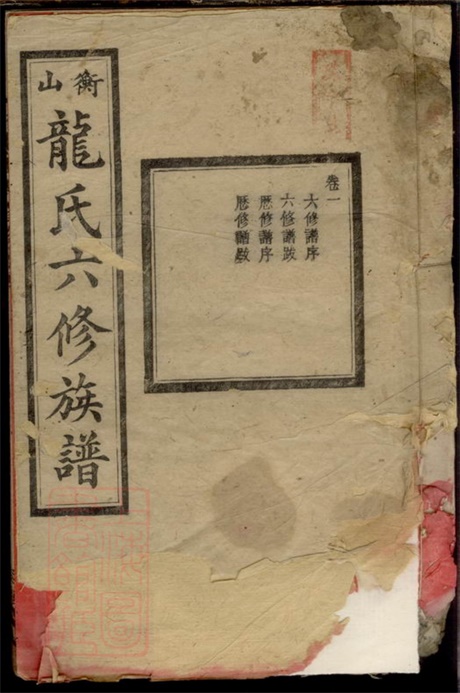 衡山
龍氏六修族譜
卷一
六修譜序
六修譜跋
厯修譜序
厯修譜跋